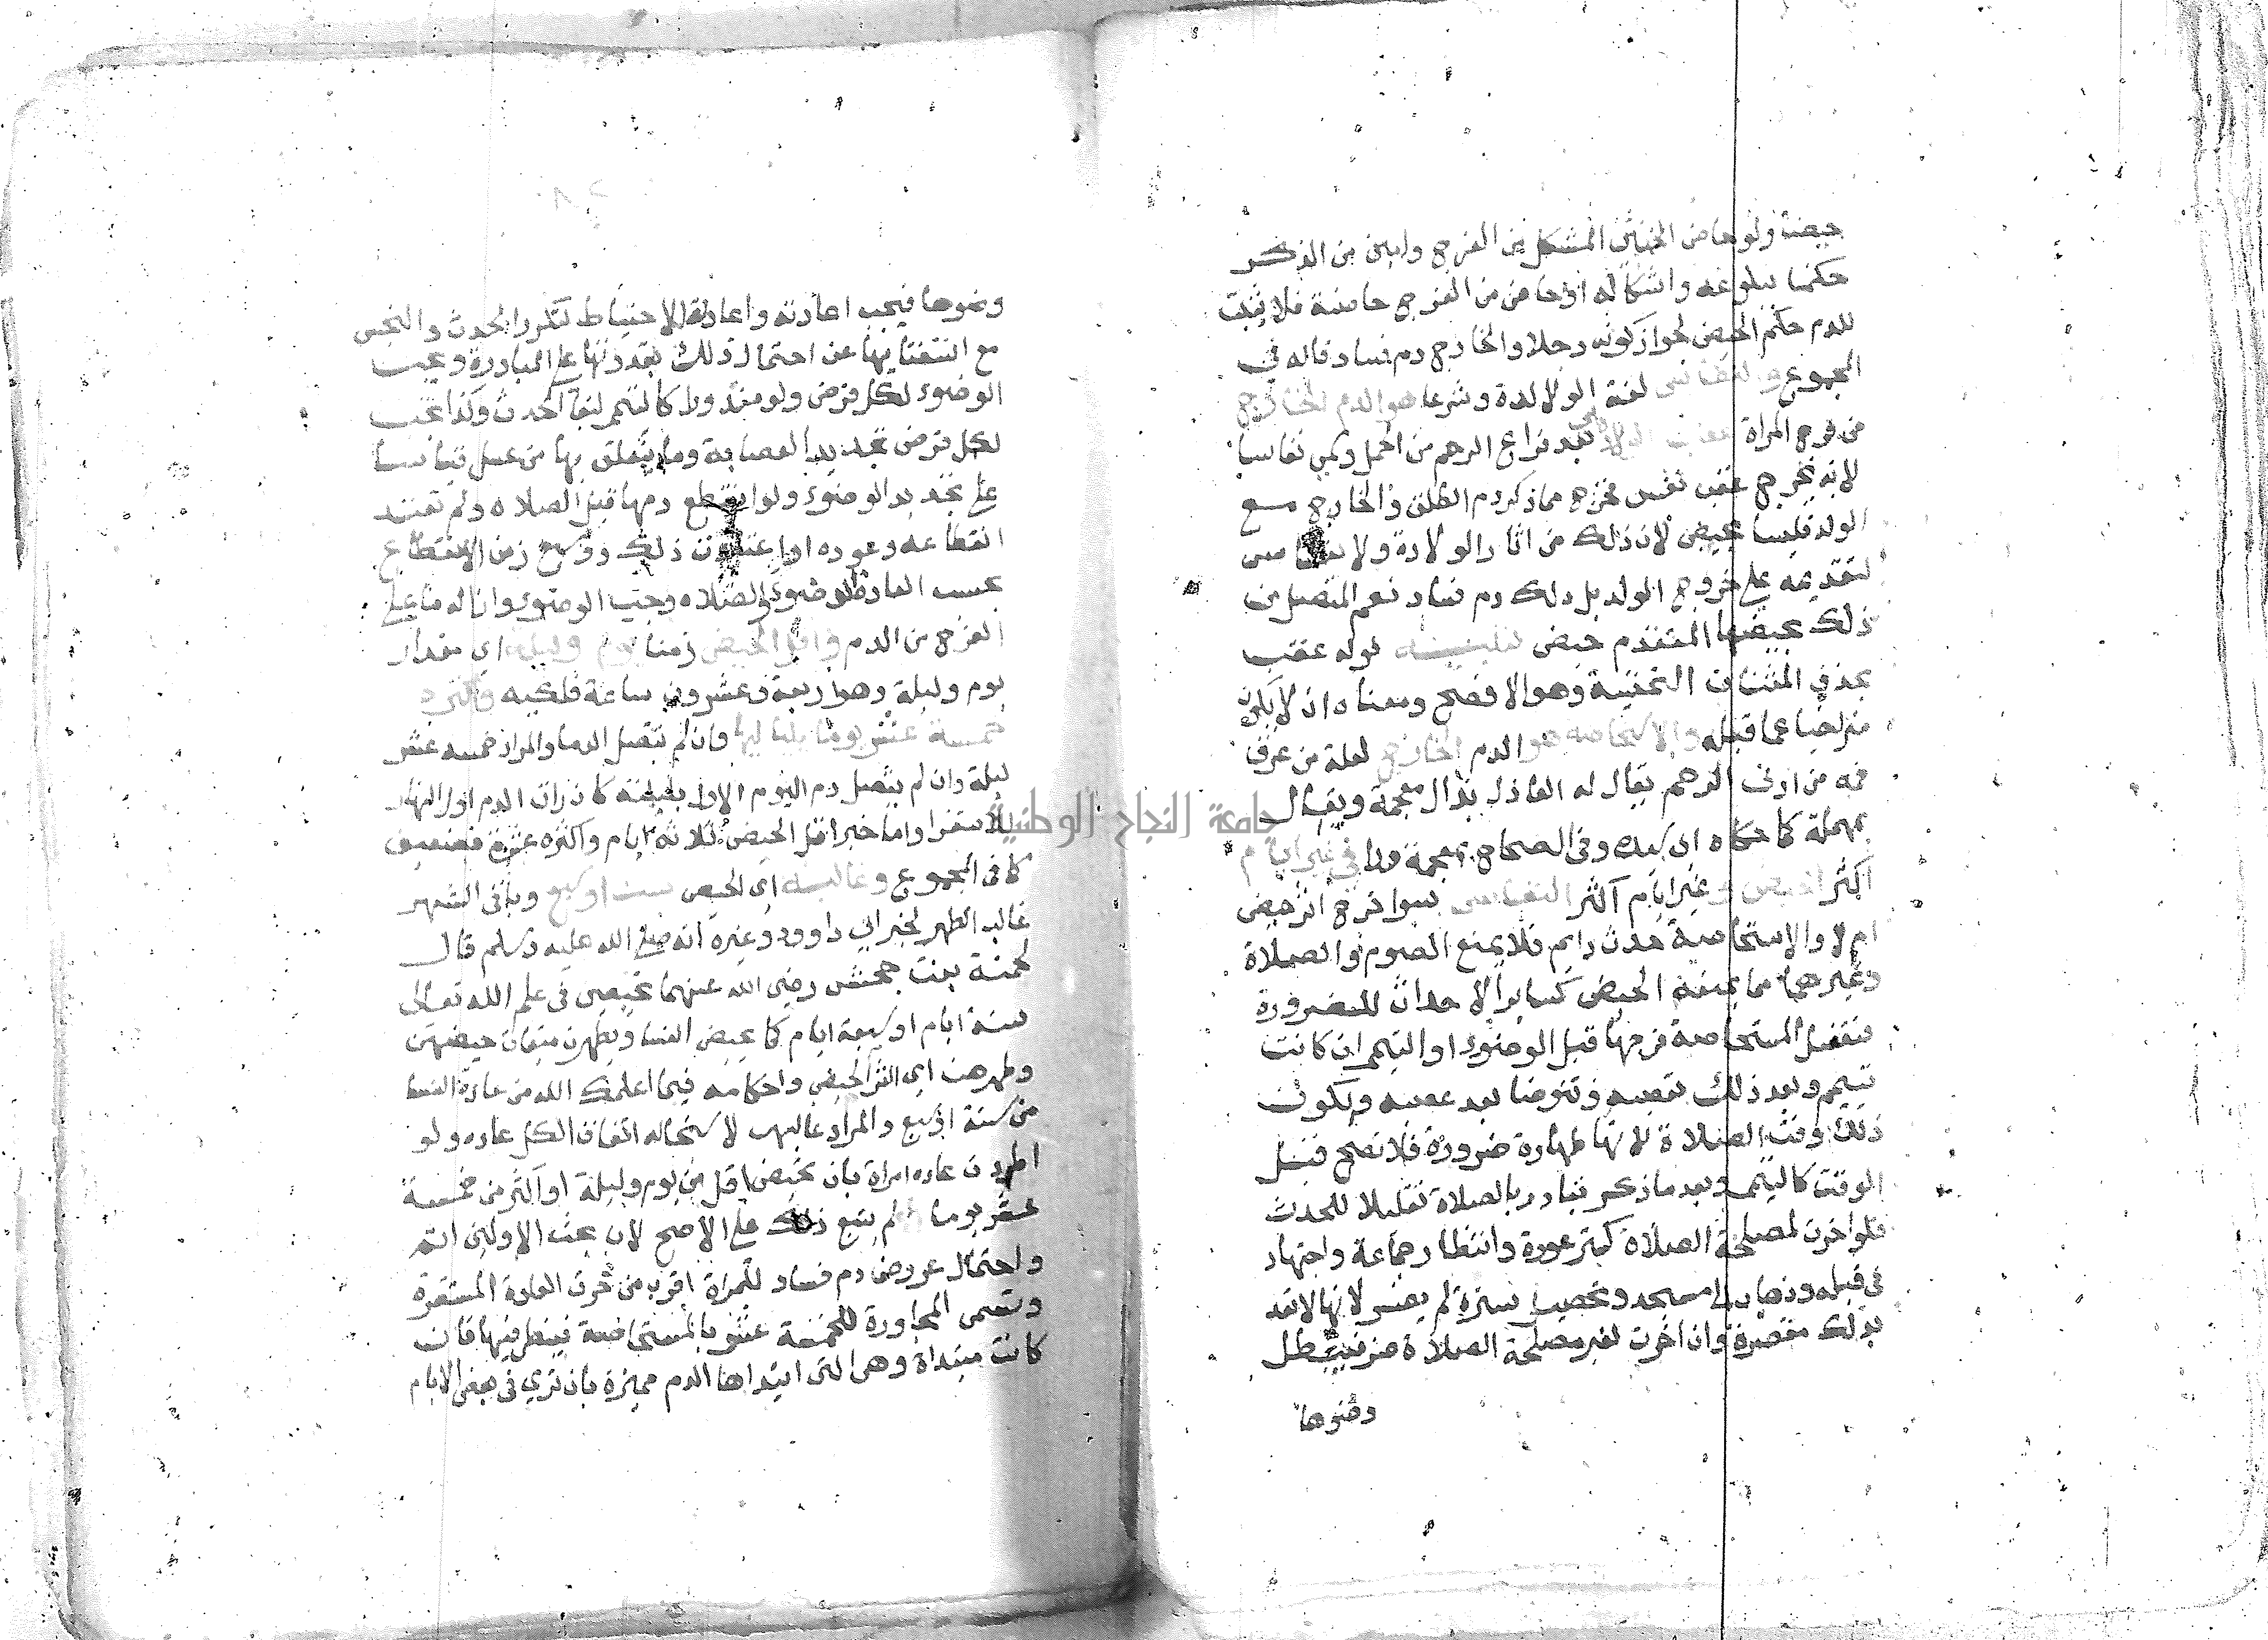 حيضا ولو حاض الخنثى المشكل من الفرج وامنى من الذكر
حكمنا ببلوغه واشكاله او حاض من الفرج خاصة فلا يثبت
للدم حكم الحيض لجواز كونه رجلا والخارج دم فساد قاله في
المجموع والنفاس لغة الولادة وشرعا هو الدم الخارج
من فرج المراة عقب الولادة بعد فراغ الرحم من الحمل وسمي نفاسا
لانه يخرج عقب نفس فخرج مما ذكر دم الطلق والخارج مع
الولد فليسا بحيض لان ذلك من اثار الولادة ولا نفاس
لتقدمه علي خروج الولد بل ذلك دم فساد نعم المتصل من
ذلك بحيضها المتقدم حيض تنبيه قوله عقب
بحذف المثناة التحتية وهو الافصح ومعناه ان لا يكون
متراخيا عما قبله والاستحاضة هو الدم الخارج لعلة من عرق
فمه من ادنى الرحم يقال له العاذل بذال معجمة ويقال
بمهملة كما حكاه ابن سيده وفى الصحاح بمعجمة ورا في غير ايام
اكثر الحيض وغير ايام اكثر النفاس سوا خرج اثر حيض
ام لا والاستحاضة حدث دايم فلا يمنع الصوم والصلاة
وغيرهما مما يمنعه الحيض كساير الاحداث للضرورة
فتغسل المستحاضة فرجها قبل الوضوء او التيمم ان كانت
تتيمم وبعد ذلك تعصبه وتتوضا بعد عصبه ويكون
ذلك وقت الصلاة لانها طهارة ضرورة فلا تصح قبل
الوقت كالتيمم وبعد ما ذكر تبادر بالصلاة تقليلا للحدث
فلو اخرت لمصلحة الصلاة كستر عورة وانتظار جماعة واجتهاد
فى قبله وذهاب الى مسجد وتحصيل سترة لم يضر لانها لا تعد
بذلك مقصرة وان اخرت لغير مصلحة الصلاة ضر فيبطل
وضوها
وضوها فيجب اعادته واعادة الاحتياط لتكرر الحدث والنجس
مع استغنايها عن احتمال ذلك بقدرتها علي المبادرة ويجب
الوضوء لكل فرض ولو منذورا كالتيمم لبقا الحدث وكذا يجب
لكل فرض تجديد العصابة وما يتعلق بها من غسل قياسا
علي تجديد الوضوء ولو انقطع دمها قبل الصلاه ولم تعتد
انقطاعه وعوده او اعتادت ذلك ووسع زمن الانقطاع
بحسب العادة الوضوء والصلاه وجب الوضوء وازاله ما علي
الفرج من الدم واقل الحيض زمنا يوم وليلة اي مقدار
يوم وليلة وهو اربعة وعشرون ساعة فلكيه واكثره
خمسة عشر يوما بلياليها وان لم تتصل الدما والمراد خمسه عشر
ليلة وان لم يتصل دم اليوم الاول بليلته كان رات الدم اول النهار
للاستقرا واما خبر اقل الحيض ثلاثه ايام واكثره عشرة فضعيف
كما فى المجموع وغالبه اى الحيض ست او سبع وباقى الشهر
غالب الطهر لخبر ابي داوود وغيره انه صلي الله عليه وسلم قال
لحمنة بنت جحش رضى الله عنهما تحيضى فى علم الله تعالى
ستة ايام او سبعة ايام كما تحيض النسا ويطهرن ميقات حيضهن
وطهرهن اي التزمي الحيض واحكامه فيما اعلمك الله من عادة النسا
من ستة او سبع والمراد غالبهن لاستحاله اتفاق الكل عاده ولو
اطردت عاده امراة بان تحيض اقل من يوم وليلة او اكثر من خمسة
عشر يوما لم يتبع ذلك علي الاصح لان بحث الاولين اتم
واحتمال عروض دم فساد للمراة اقرب من خرق العادة المستقرة
وتسمى المجاورة للخمسة عشر بالمستحاضة فينظر فيها فان
كانت مبتداة وهى التى ابتداها الدم مميزة بان ترى فى بعض الايام
جامعة النجاح الوطنية